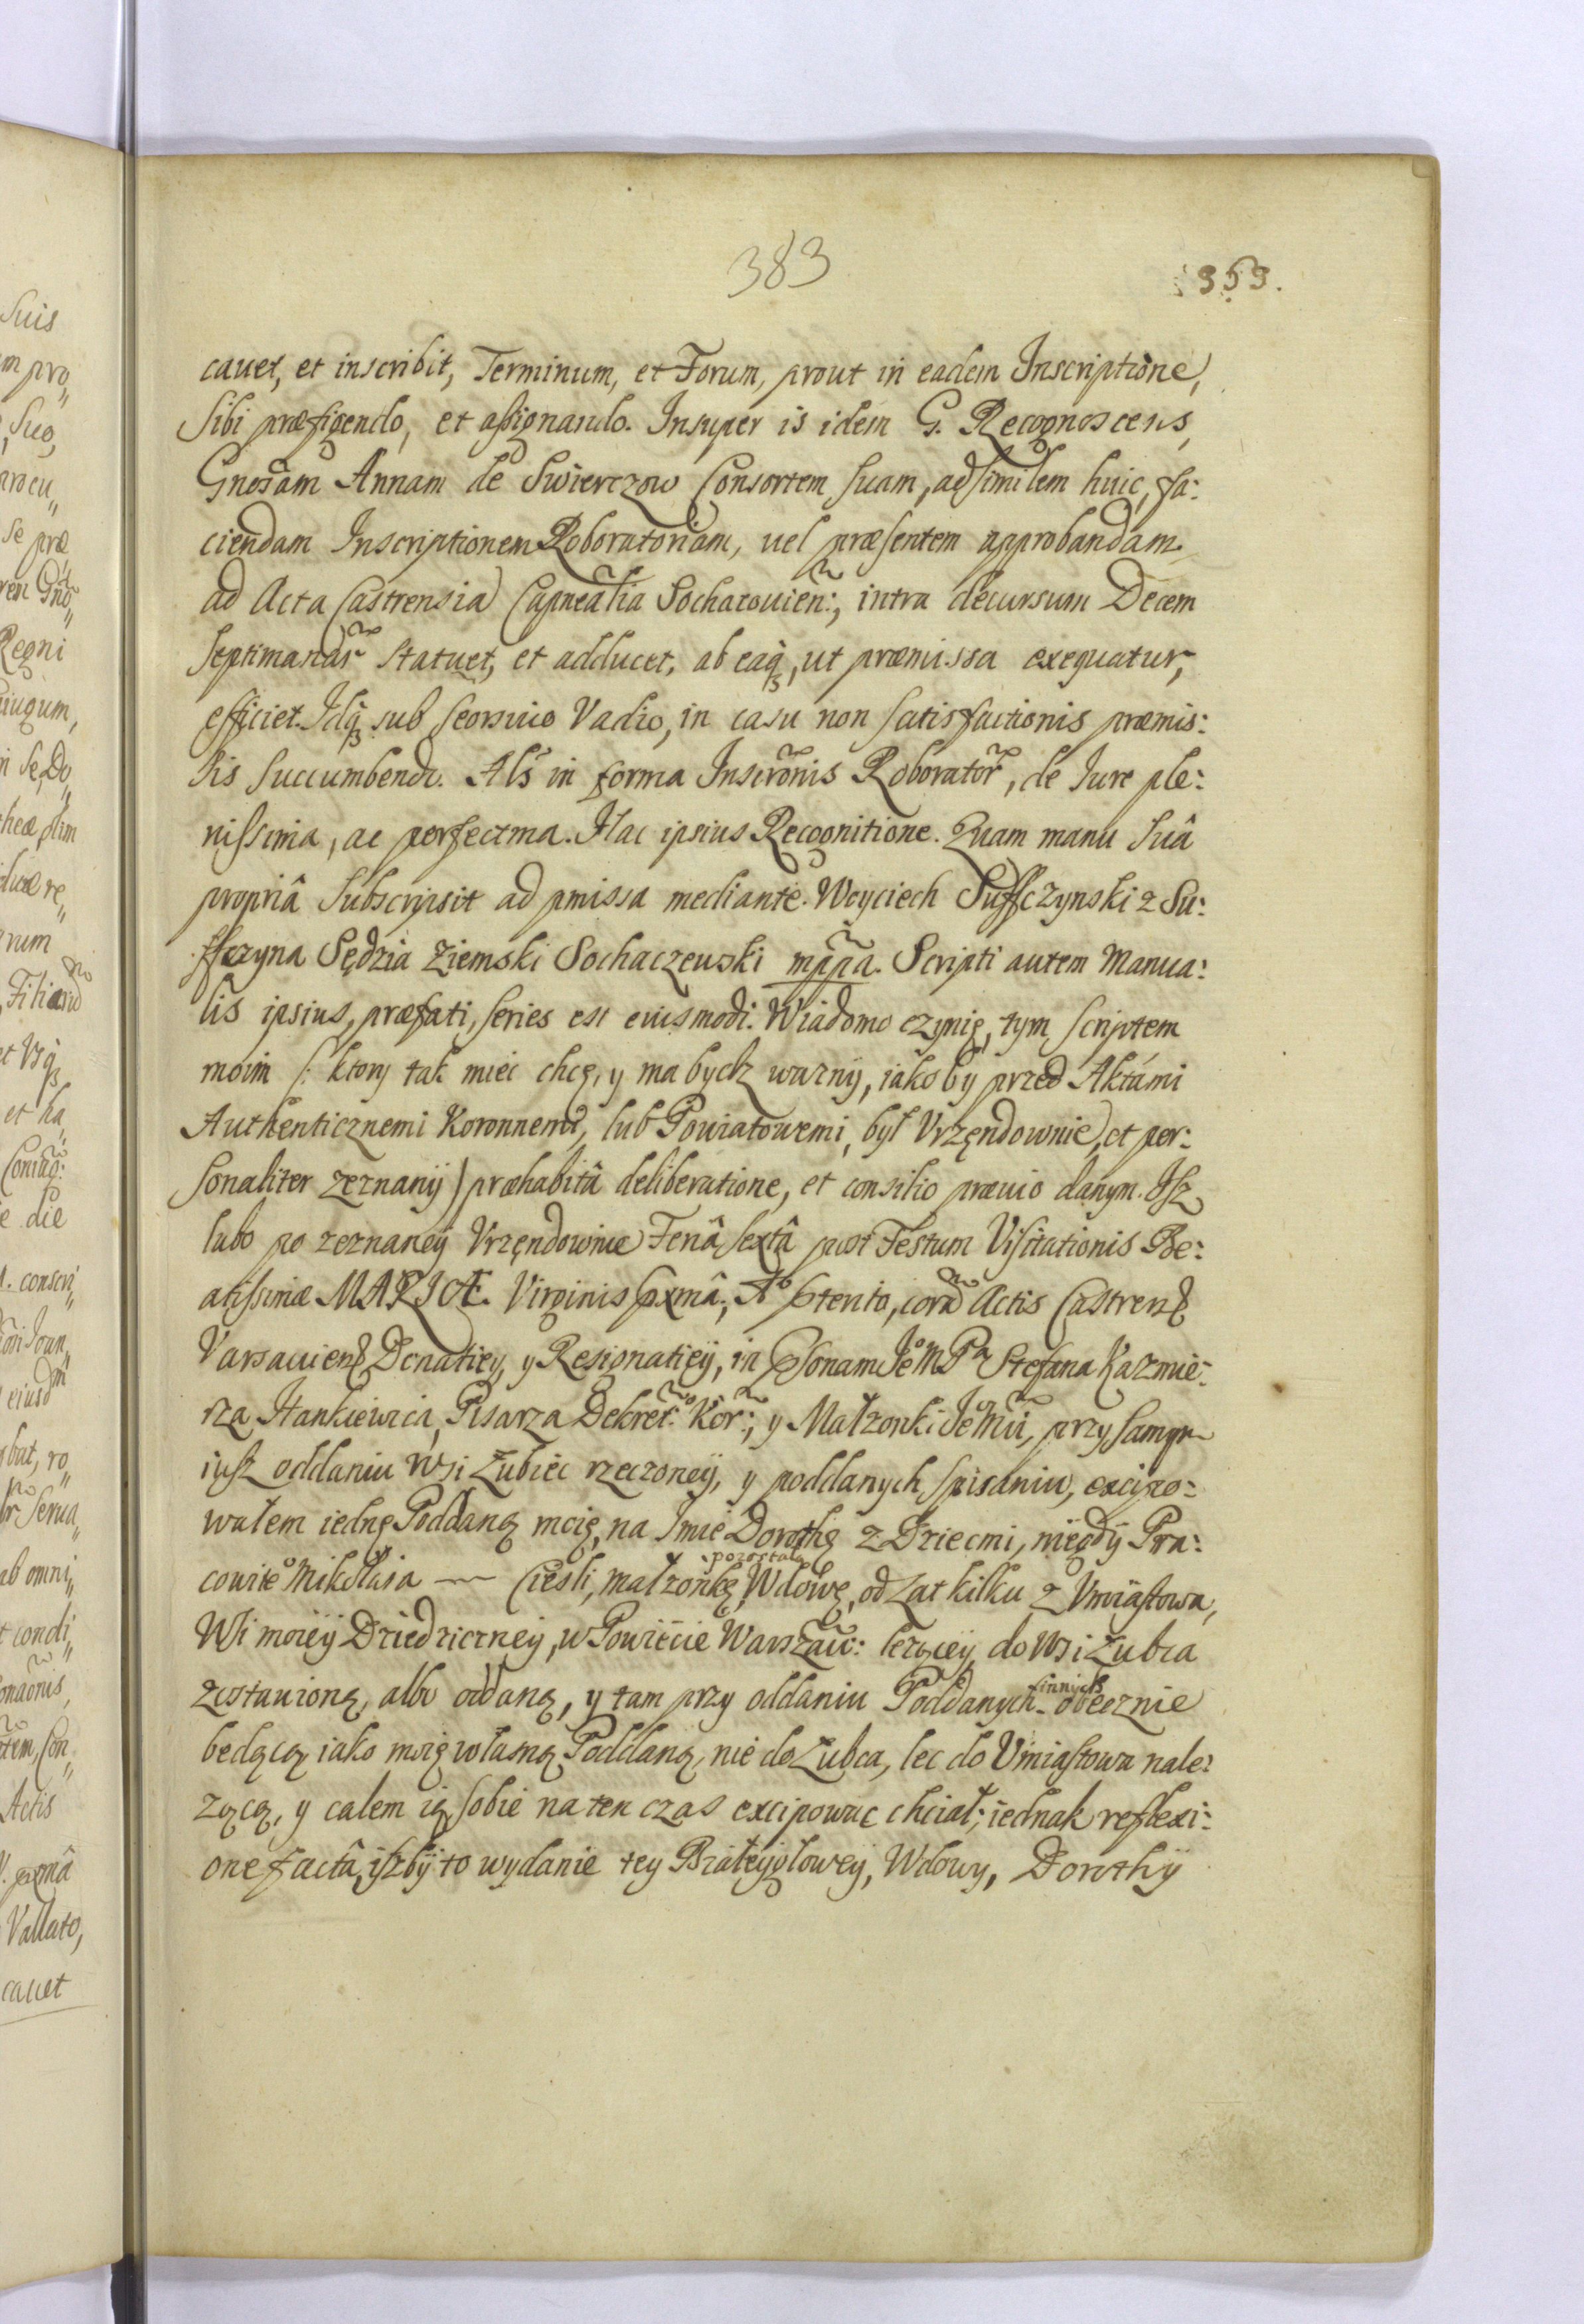 383
353.
cauet, et inscribit, Terminum, et Forum, prout in eadem Inscriptione,
Sibi præfigendo, et aßignando. Insuper is idem G. Recognoscens,
Gnosam Annam de Swierczow Consortem Suam, ad similem huic, fa:
ciendam Inscriptionem Roboratoriam, uel præsentem approbandam
ad Acta Castrensia Capnealia Sochatouień:, intra decursum Decem
Septimanar̃ Statuet, et adducet, ab eaq3, ut præmissa exequatur,
efficiet. Idq3 sub seorsiuo Vadio, in casu non satisfactionis præmis:
sis Succumbendo. Als in forma Inscrõnis Roborator̃, de Iure ple:
nissima, ac perfectma. Hac ipsius Recognitione. Quam manu Suâ
propriâ Subscripsit ad pmissa mediante. Woyciech Suffczynski z Su:
ffczyna Sędzia Ziemski Sochaczewski mppa. Scripti autem Manua:
lis ipsius, præfati, series est eiusmodi. Wiadomo czynię, tym scriptem
moim /: ktory tak miec chcę, y ma bydz wazny, iako by przed Aktámi
Authenticznemi Koronnemi, lub Powiatowemi, był Vrzęndownie, et per:
sonaliter zeznany) præhabitâ deliberatione, et consilio præuio danym. Isz
lubo po zeznaney Vrzęndownie Feriâ sextâ post Festum Visitationis Be:
atissimæ MARIÆ. Virginis pxmâ, Aº pstento, corã Actis Castren
Varsauien Donatiey, y Resignatiey, in psonam Jeº M Pª Stefana Kazmie:
rza Hankiewica, Pisarza Dekret:º Kor:, y Małzonki Jeº Mci, przy samym
iusz oddaniu Wsi Zubiec rzeczoney, y poddanych spisaniu, excipo:
wałem iednę Poddaną moię, na Imie Dorothę z Dziecmi, niegdy Pra:
cowiteº Mikołaia — Ciesli, małzonkę, pozostałą Wdowę, od lat kilku z Vmiastowa,
Wsi moiey Dziedziczney, w Powiecie Warszaw: lezącey, do Wsi Zubca
zostawioną, albo oddaną, y tam przy oddaniu Poddanych innych obecznie
będącą iako moię własną Poddaną, nie do Zubca, lec do Vmiastowa nale:
zącą, y całem ią sobie na ten czas excipować chciał; iednak reflexi:
one factâ, yszby to wydanie tey Białeygłowey, Wdowy, Dorothy